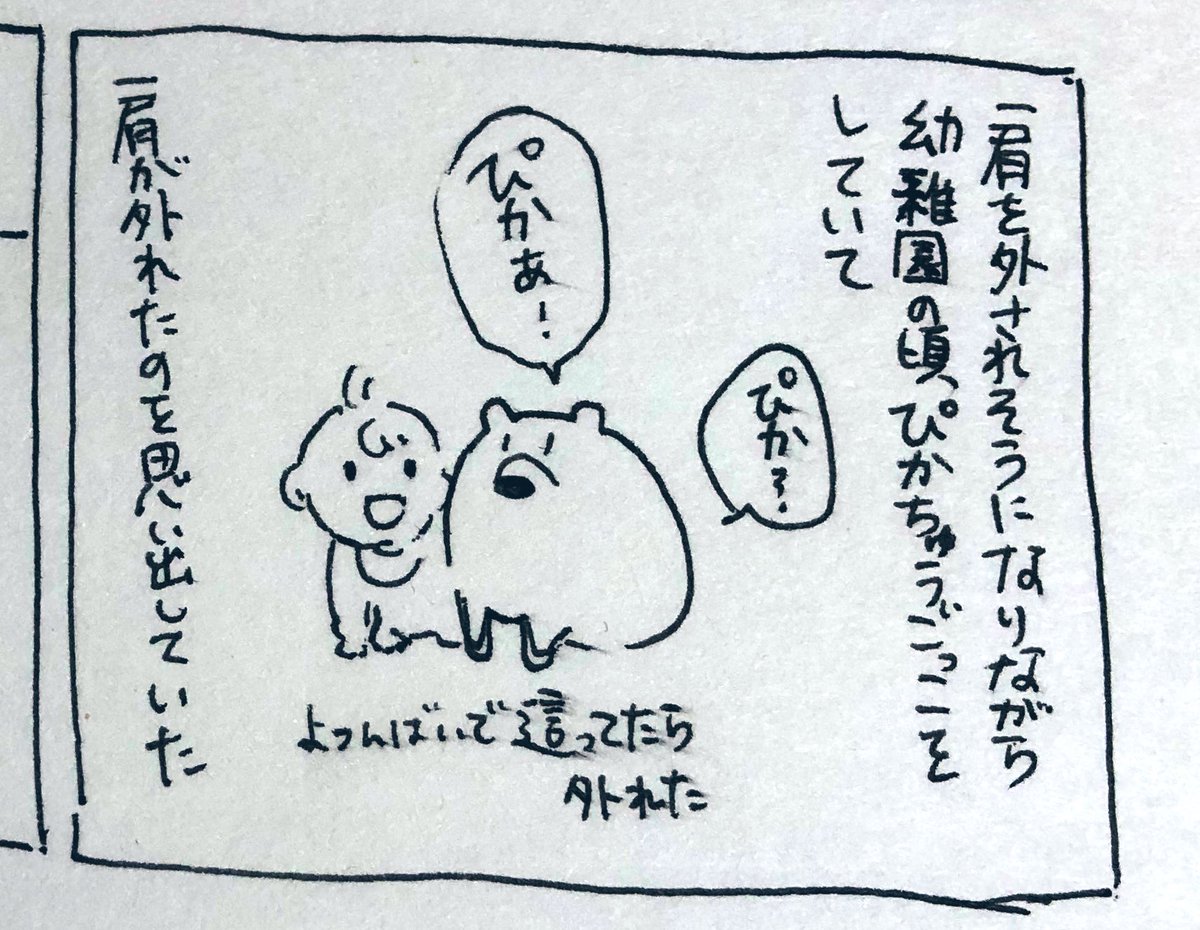 肩を外されそうになりながら
幼稚園の頃、ぴかちゅうごっこを
していて
ぴか？
ぴかぁ！
よつんばいで這ってたら
外れた
肩が外れたのを思い出していた